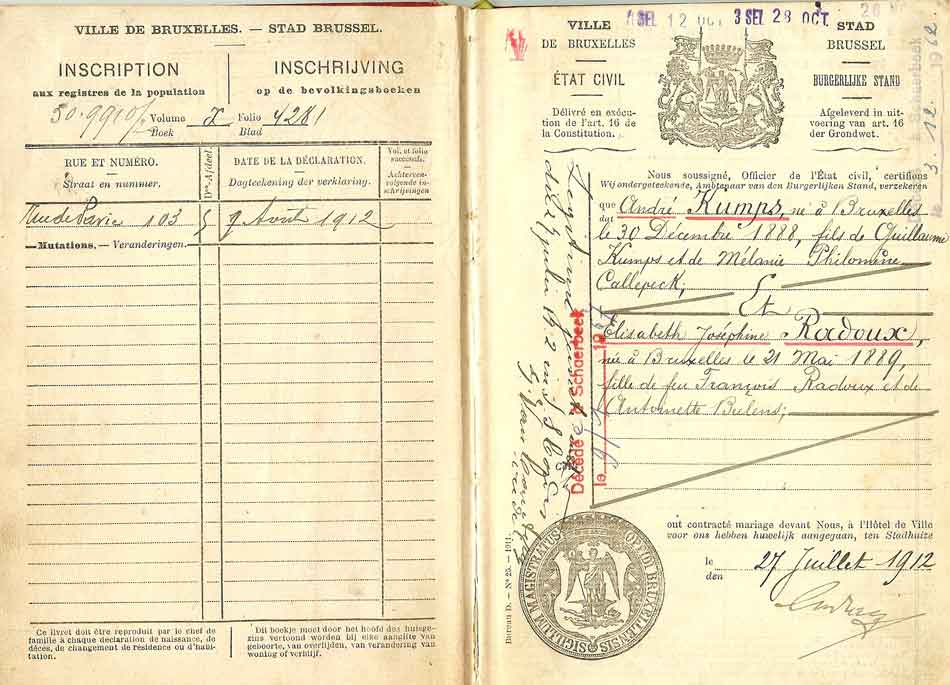 VILLE DE BRUXELLES. — STAD BRUSSEL.
INSCRIPTION
aux registres de la population
INSCHRIJVING
op de bevolkingsboeken
Volume
Boek
Folio
Blad
RUE ET NUMÉRO.
Straat en nummer.
DATE DE LA DÉCLARATION.
Dagteekening der verklaring.
Vol. et folio
successifs.
Achtereen-
volgende in-
schrijvingen
103 5 9 Août 1912
—Mutations. — Veranderingen.—
Ce livret doit être reproduit par le chef de
famille à chaque déclaration de naissance, de
décès, de changement de résidence ou d'habi-
tation.
Dit boekje moet door het hoofd des huisge-
zins vertoond worden bij elke aangifte van
geboorte, van overlijden, van verandering van
woning of verblijf.
SEL 12 OCT 3 SEL 28 OCT.
VILLE
DE BRUXELLES
ÉTAT CIVIL
Délivré en exécu-
tion de l'art. 16 de
la Constitution.
STAD
BRUSSEL
BURGERLIJKE STAND
Afgeleverd in uit-
voering van art. 16
der Grondwet.
Nous soussigné, Officier de l'État civil, certifions
Wij ondergeteekende, Ambtenaar van den Burgerlijken Stand, verzekeren
que
dat
André Kumps, né à Bruxelles
le 30 Décembre 1888, fils de Guillaume
Kumps et de Mélanie Philomène
Callepeck;
Et
Elisabeth Joséphine Radoux,
née à Bruxelles le 21 Mai 1889,
fille de feu François Radoux et de
Antoinette Bulens;
Décédé à Schaerbeek
le
ont contracté mariage devant Nous, à l'Hôtel de Ville
voor ons hebben huwelijk aangegaan, ten Stadhuize
le
den
27 Juillet 1912
Bureau D. — N° 25. — 1911.